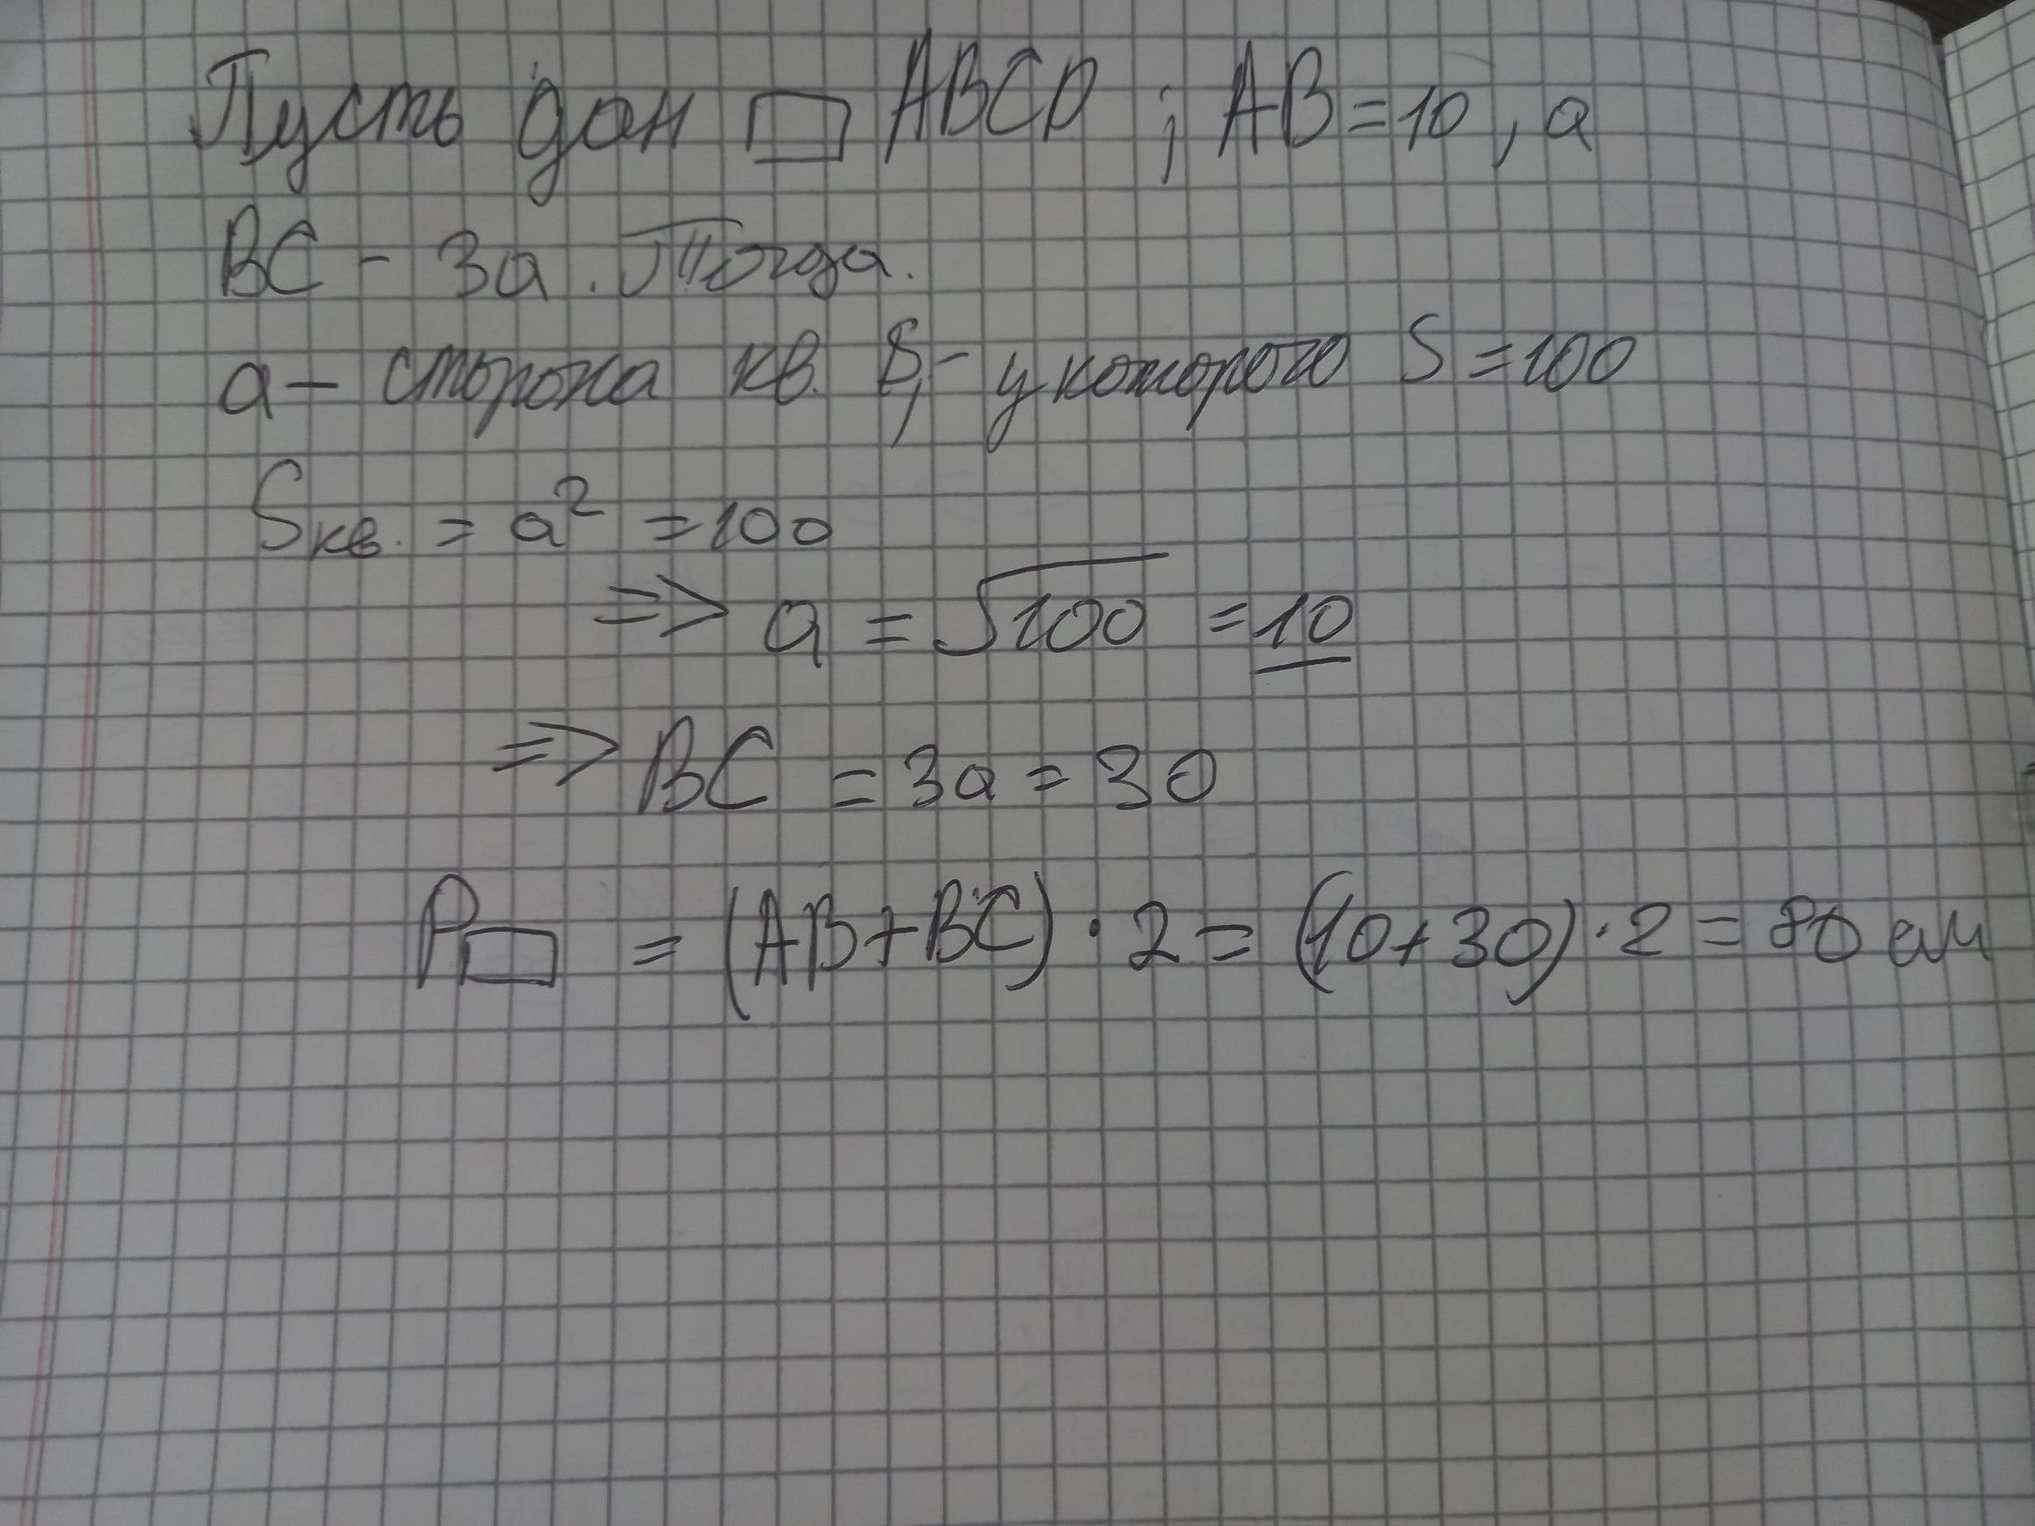 Пусть дан ▭ ABCD ; AB = 10 , а
BC - 3a . Тогда.
a - сторона кв. у которого S = 100
Sкв. = a² = 100
=> a = √100 = 10
=> BC = 3a = 30
P▭ = (AB+BC) · 2 = (10+30) · 2 = 80 см